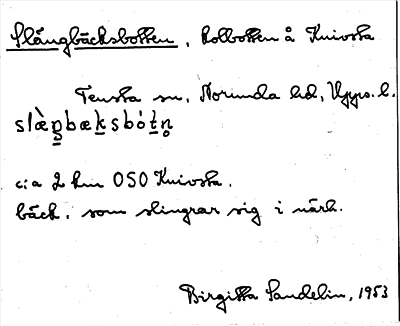 Slångbäcksbotten, kolbotten å Knivsta
Tensta sn, Norunda hd, Upps. l.
slæ̀ŋbæksbòtn̥
c:a 2 km OSO Knivsta.
bäck, som slingrar sig i närh.
Birgitta Sandelin, 1953